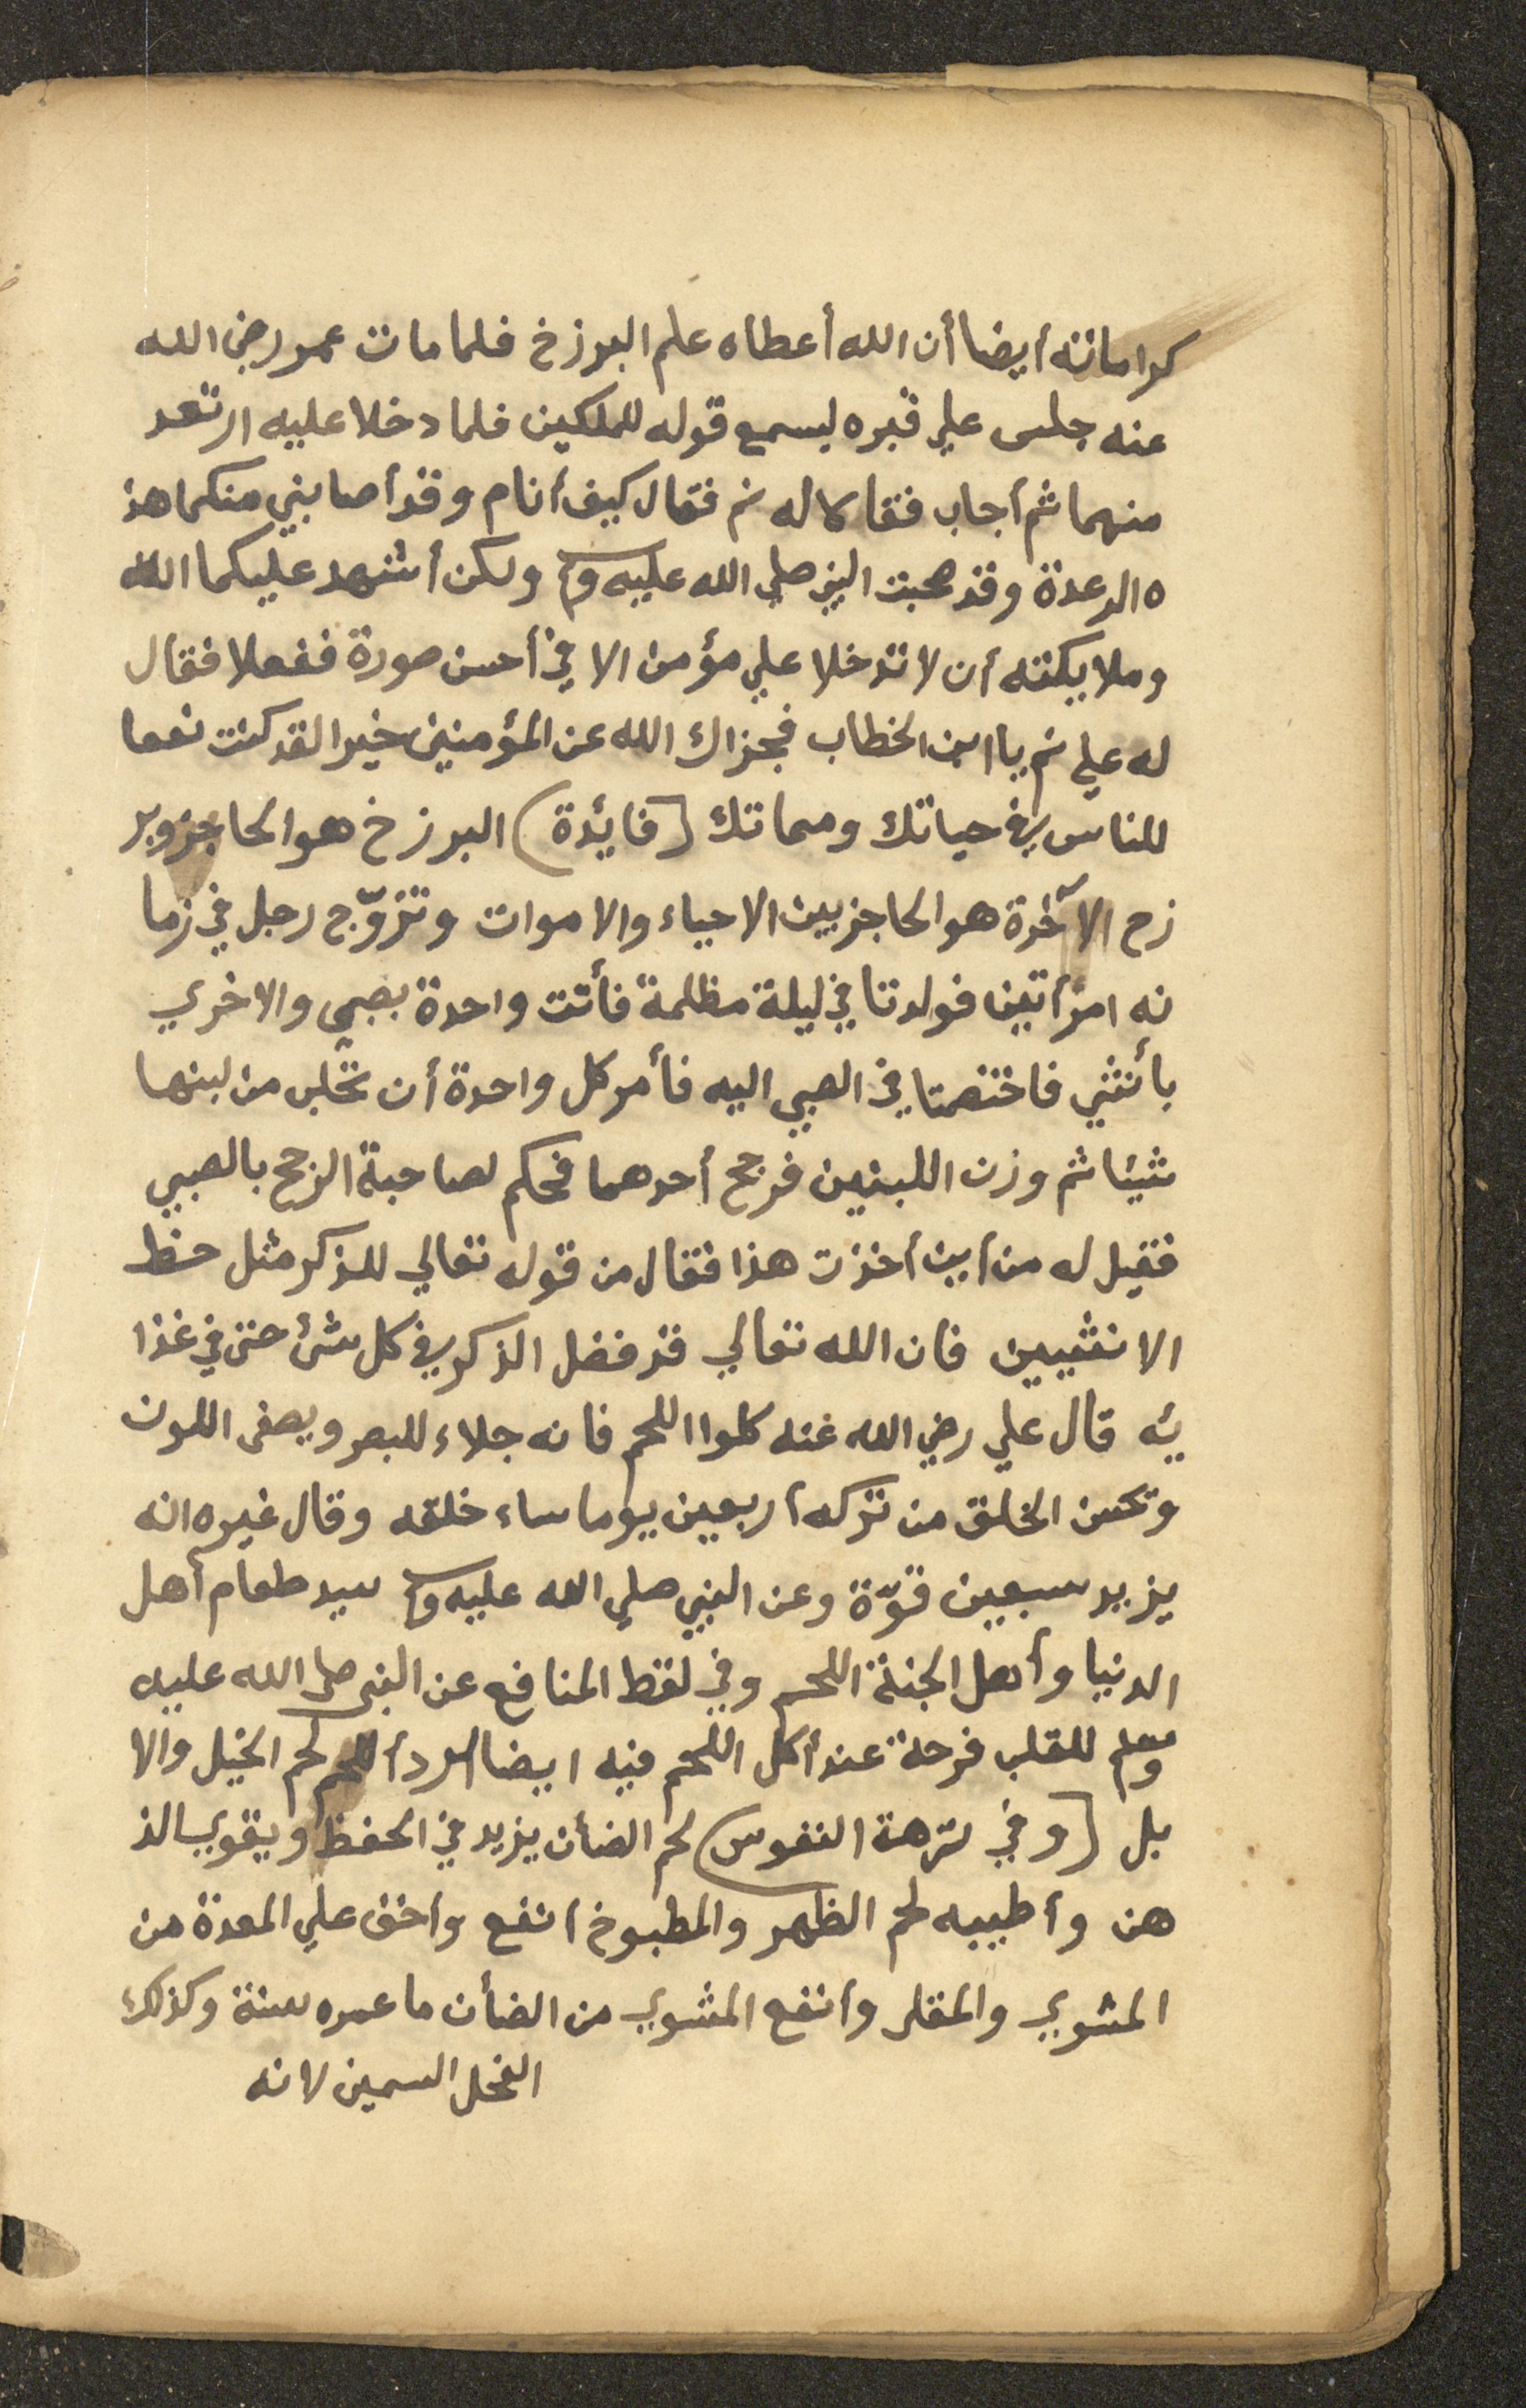 كراماته أيضا أن الله أعطاه علم البرزخ فلما مات عمر رضي الله
عنه جلس علي قبره ليسمع قوله للملكين فلما دخلا عليه ارتعد
منهما ثم أجاب فقالا له نم فقال كيف أنام وقد أصابني منكما هذ
ه الرعدة وقد صحبت النبي صلي الله عليه وسلم ولكن أشهد عليكما الله
وملايكته أن لا تدخلا علي مؤمن الا في أحسن صورة ففعلا فقال
له علي نم يا ابن الخطاب فجزاك الله عن المؤمنين خيرا لقد كنت نفعا
للناس في حياتك ومماتك (فايدة) البرزخ هو الحاجز وبر
زح الآخرة هو الحاجز بين الاحياء والاموات وتزوّج رجل في زما
نه امرأتين فولدتا في ليلة مظلمة فأتت واحدة بصبي والاخري
بأنثي فاختصمتا في الصبي اليه فأمر كل واحدة أن تحلب من لبنها
شيئا ثم وزن اللبنين فرجح أحدهما فحكم لصاحبة الرجح بالصبي
فقيل له من أين أخذت هذا فقال من قوله تعالي للذكر مثل حظ
الانثيين فان الله تعالي قد فضل الذكر في كل شئ حتى في غذا
يه قال علي رضي الله عنه كلوا اللحم فانه جلاء للبصر ويصفى اللون
وتحسن الخلق من تركه أربعين يوما ساء خلقه وقال غيره انه
يزيد سبعين قوّة وعن النبي صلي الله عليه وسلم سيد طعام أهل
الدنيا وأهل الجنة اللحم وفي لقط المنافع عن النبي صلى الله عليه
وسلم للقلب فرحة عند أكل اللحم فيه ايضا أردأ اللحم لحم الخيل والا
بل (وفي نزهة النفوس) لحم الضأن يزيد في الحفظ ويقوي الذ
هن وأطيبه لحم الظهر والمطبوخ أنفع وأخف علي المعدة من
المشوي والمقلى وأنفع المشوي من الضأن ما عمره سنة وكذلك
الفحل السمين لانه